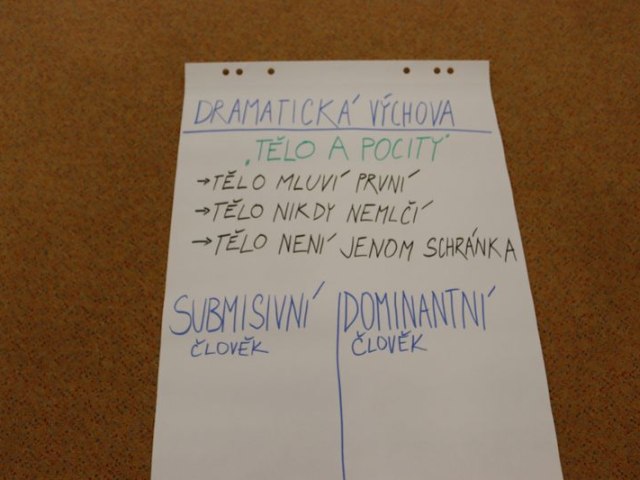 DRAMATICKÁ VÝCHOVA
"TĚLO A POCITY"
→TĚLO MLUVÍ PRVNÍ
→TĚLO NIKDY NEMLČÍ
→TĚLO NENÍ JENOM SCHRÁNKA
SUBMISIVNÍ
ČLOVĚK
DOMINANTNÍ
ČLOVĚK